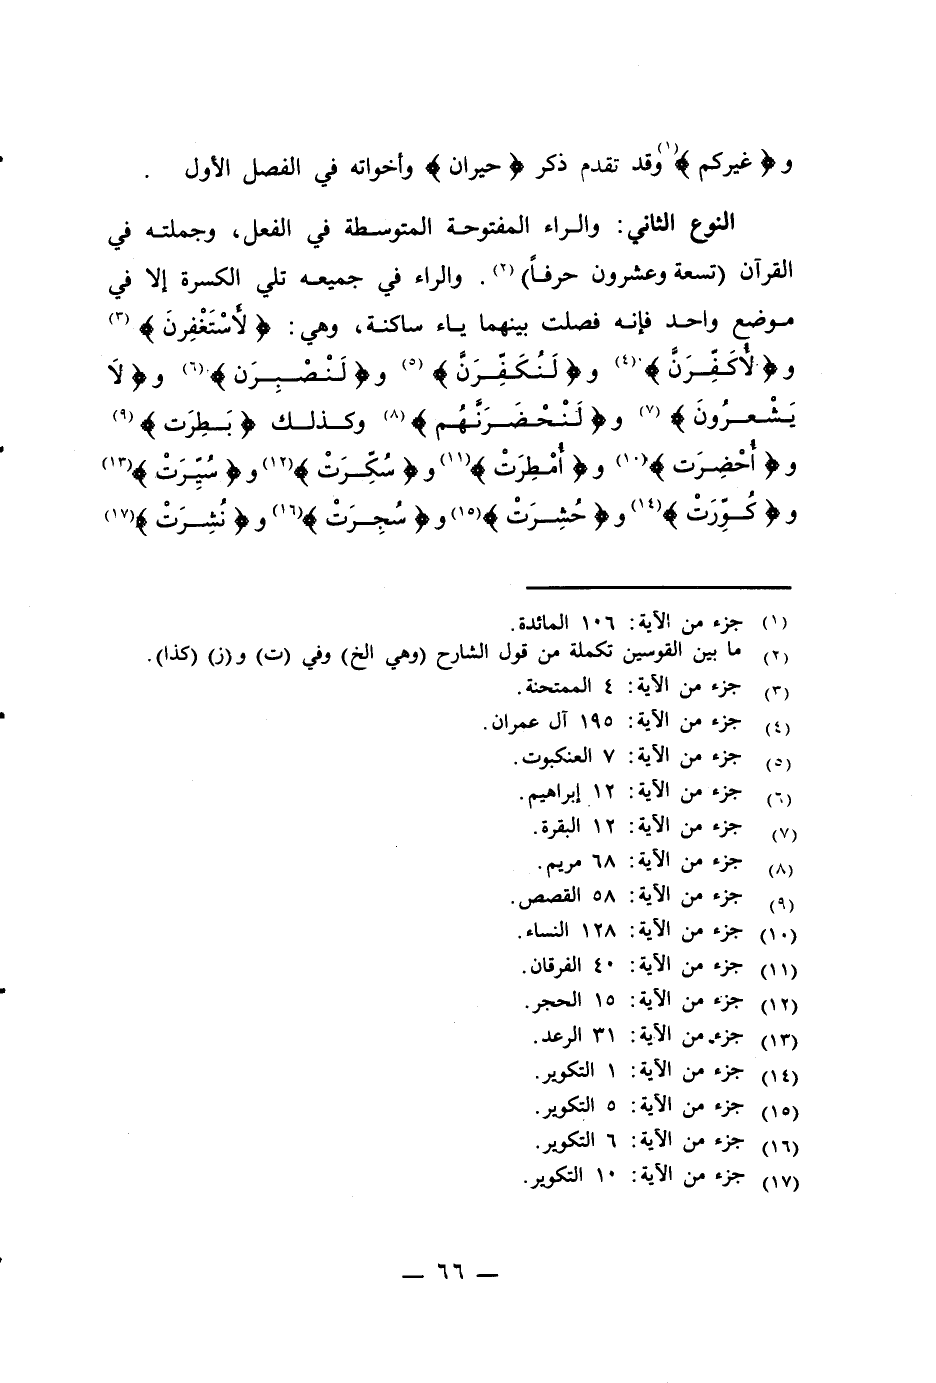 و﴿ غيركم ﴾(١) وقد تقدم ذكر ﴿ حيران ﴾ وأخواته في الفصل الأول .
النوع الثاني: والراء المفتوحة المتوسطة في الفعل، وجملته في
القرآن (تسعة وعشرون حرفاً) (٢). والراء في جميعه تلي الكسرة إلا في
موضع واحد فإنه فصلت بينهما ياء ساكنة، وهي: ﴿ لأَسْتَغْفِرنَ ﴾ (٣)
و﴿ لأُكَفِّرَنَّ ﴾(٤) و﴿ لَنُكَفِّرَنَّ ﴾ (٥) و﴿ لَنْصْبِرَن ﴾(٦) و﴿ لاَ
يَشْعرُونَ ﴾ (٧) و﴿ لَنْحْضَرَنَّهُم ﴾(٨) وكذلك ﴿ بَطِرَت ﴾ (٩)
و﴿ أُحْضِرَت ﴾(١٠) و﴿ أُمْطِرَتْ ﴾(١١) و﴿ سُكِّرَتْ ﴾(١٢) و﴿ سُيِّرَتْ ﴾(١٣)
و﴿ كُوِّرَتْ ﴾(١٤) و﴿ حُشِرَتْ ﴾(١٥) و﴿ سُجِرَتْ ﴾(١٦) و﴿ نُشِرَتْ ﴾(١٧)
(١) جزء من الآية: ١٠٦ المائدة.
(٢) ما بين القوسين تكملة من قول الشارح (وهي الخ) وفي (ت) و(ز) (كذا).
(٣) جزء من الآية: ٤ الممتحنة.
(٤) جزء من الآية: ١٩٥ آل عمران.
(٥) جزء من الآية: ٧ العنكبوت.
(٦) جزء من الآية: ١٢ إبراهيم.
(٧) جزء من الآية: ١٢ البقرة.
(٨) جزء من الآية: ٦٨ مريم.
(٩) جزء من الآية: ٥٨ القصص.
(١٠) جزء من الآية: ١٢٨ النساء.
(١١) جزء من الآية: ٤٠ الفرقان.
(١٢) جزء من الآية: ١٥ الحجر.
(١٣) جزء من الآية: ٣١ الرعد.
(١٤) جزء من الآية: ١ التكوير.
(١٥) جزء من الآية: ٥ التكوير.
(١٦) جزء من الآية: ٦ التكوير.
(١٧) جزء من الآية: ١٠ التكوير.
— ٦٦ —